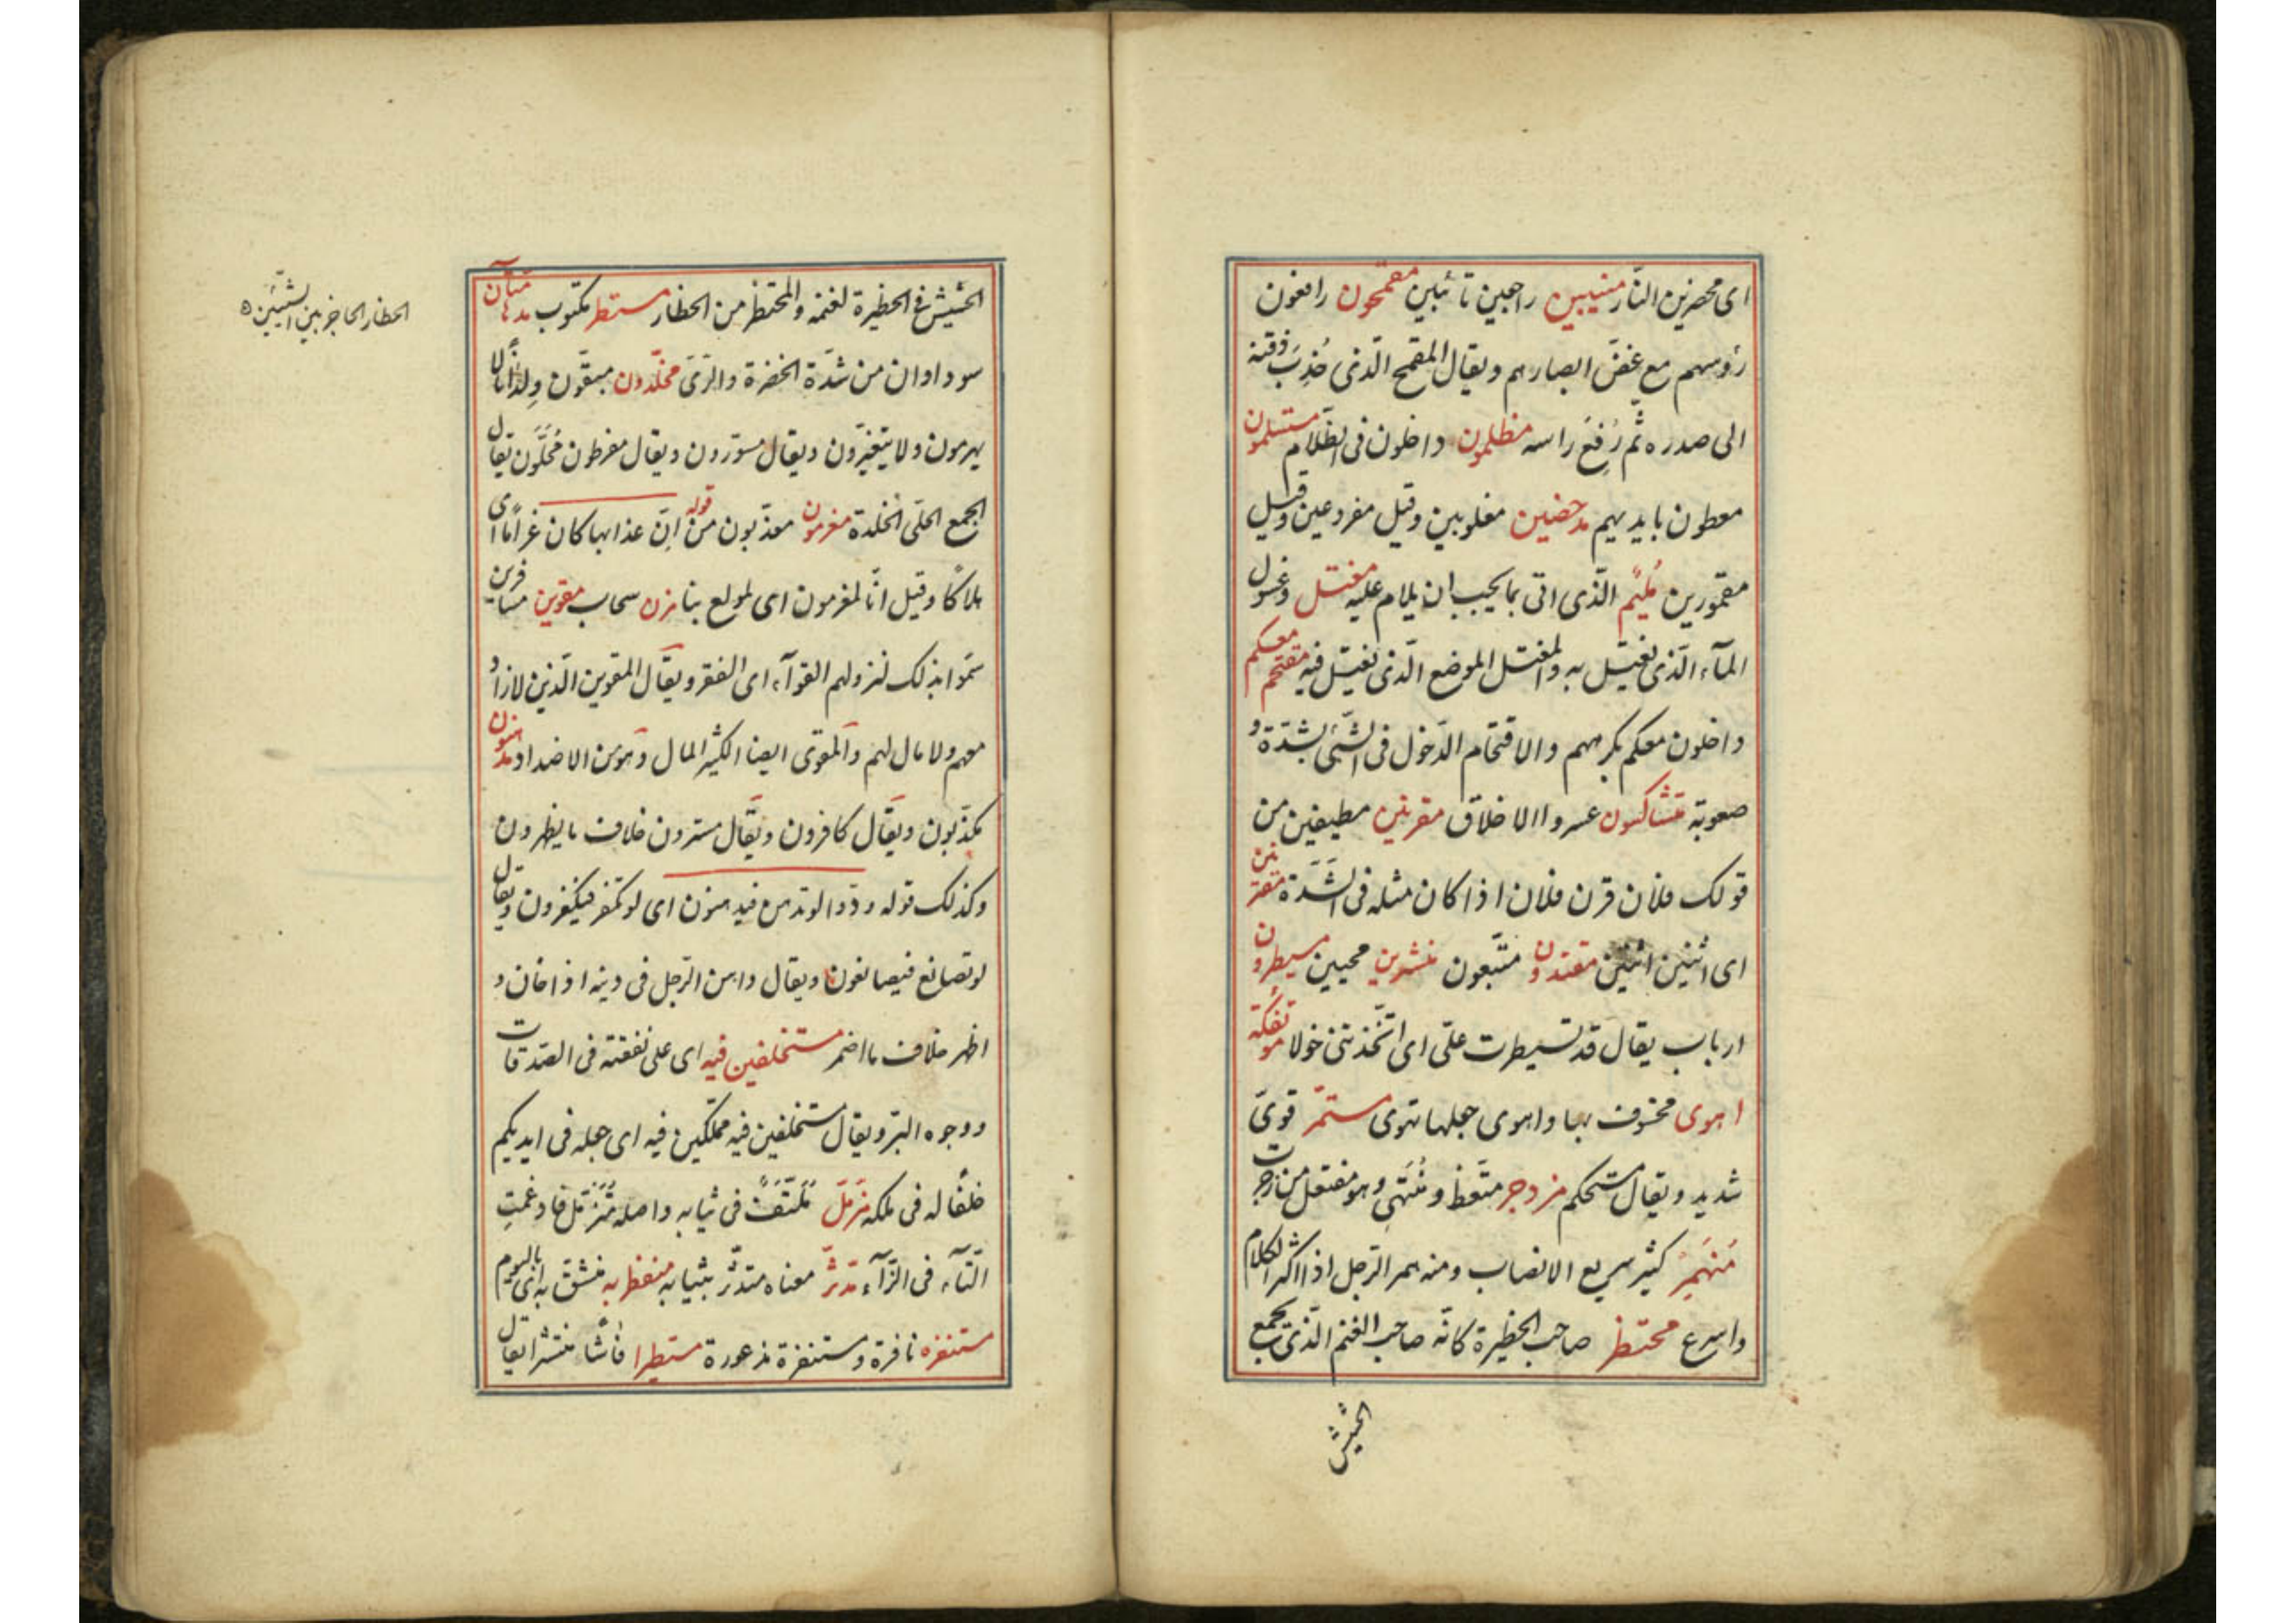 اى محضرين النّار منيبين راجعين تائبين مقمحون رافعون
رؤسهم مع غضّ ابصارهم ويقال المقمح الّذى جُذِبَ ذقنه
الى صدره ثم رُفِعَ راسه مظلمون داخلون فى الظّلام مستسلمون
معطون بايديهم مدحضين مغلوبين وقيل مقروعين وقيل
مقمورين مُليم الّذى اتى بما يجب ان يلام عليه مغتسل وغسول
المآء الّذى يغتسل به والمغتسل الموضع الّذى يغتسل فيه مقتحم معكم
داخلون معكم بكرههم والاقتحام الدّخول فى الشّىء بشدّة و
صعوبة متشاكسون عسروا الاخلاق مقرنين مطيقين من
قولك فلان قرن فلان اذا كان مثله فى الشّدّة مقترنين
اى اثنين اثنين مقتدون متّبعون منشرين محيين مسيطرون
ارباب يقال قد تسيطرت علىّ اى اتّخذتنى خولا مؤتفكة
اهوى مخسوف بها واهوى جعلها تهوى مستمرّ قوىّ
شديد ويقال مستحكم مزدجر متّعظ ومُنْتَهى وهو مفتعل من زجرت
مُنهَمِر كثير سريع الانصباب ومنه همر الرّجل اذا اكثر الكلام
واسرع محتظر صاحب الحظيرة كانّه صاحب الغنم الّذى يجمع
الحشيش
الحشيش فى الحظيرة لغنمه والمحتظر من الحظار مستطر مكتوب مدهامّتان
سوداوان من شدّة الخضرة والرّىّ مخلّدون مبقّون وِلدانًا لا
يهرمون ولا يتغيّرون ويقال مسوّرون ويقال مقرطون مُحَلَّون يقال
لجمع الحلى الخلدة مغرمون معذّبون من قوله انّ عذابها كان غرامًا اى
هلاكًا وقيل انّا لمغرمون اى لمولع بنا مزن سحاب مقوين مسافرين
سمّوا بذلك لنزولهم القوآء اى القفر ويقال المقوين الّذين لا زاد
معهم ولا مال لهم والمقوى ايضا الكثير المال وهو من الاضداد مدهنون
مكذّبون ويقال كافرون ويقال مسترون خلاف ما يظهرون
وكذلك قوله ودّوا لو تدهن فيدهنون اى لو تكفر فيكفرون ويقال
لو تصانع فيصانعون ويقال داهن الرّجل فى دينه اذا خان و
اظهر خلاف ما اضمر مستخلفين فيه اى على نفقته فى الصّدقات
ووجوه البرّ ويقال مستخلفين فيه مملّكين فيه اى جعله فى ايديكم
خلفًا له فى ملكه مزّمّل مُلتفّف فى ثيابه واصله متزمّل فادغمتِ
التّآء فى الزّآء مدّثّر معناه متدثّر بثيابه منفطر به منشقّ به اى باليوم
مستنفره نافرة ومستنفرة مذعورة مستطيرا فاشيًا منتشرا يقال
الحظار الحاجز بين الشّيئين